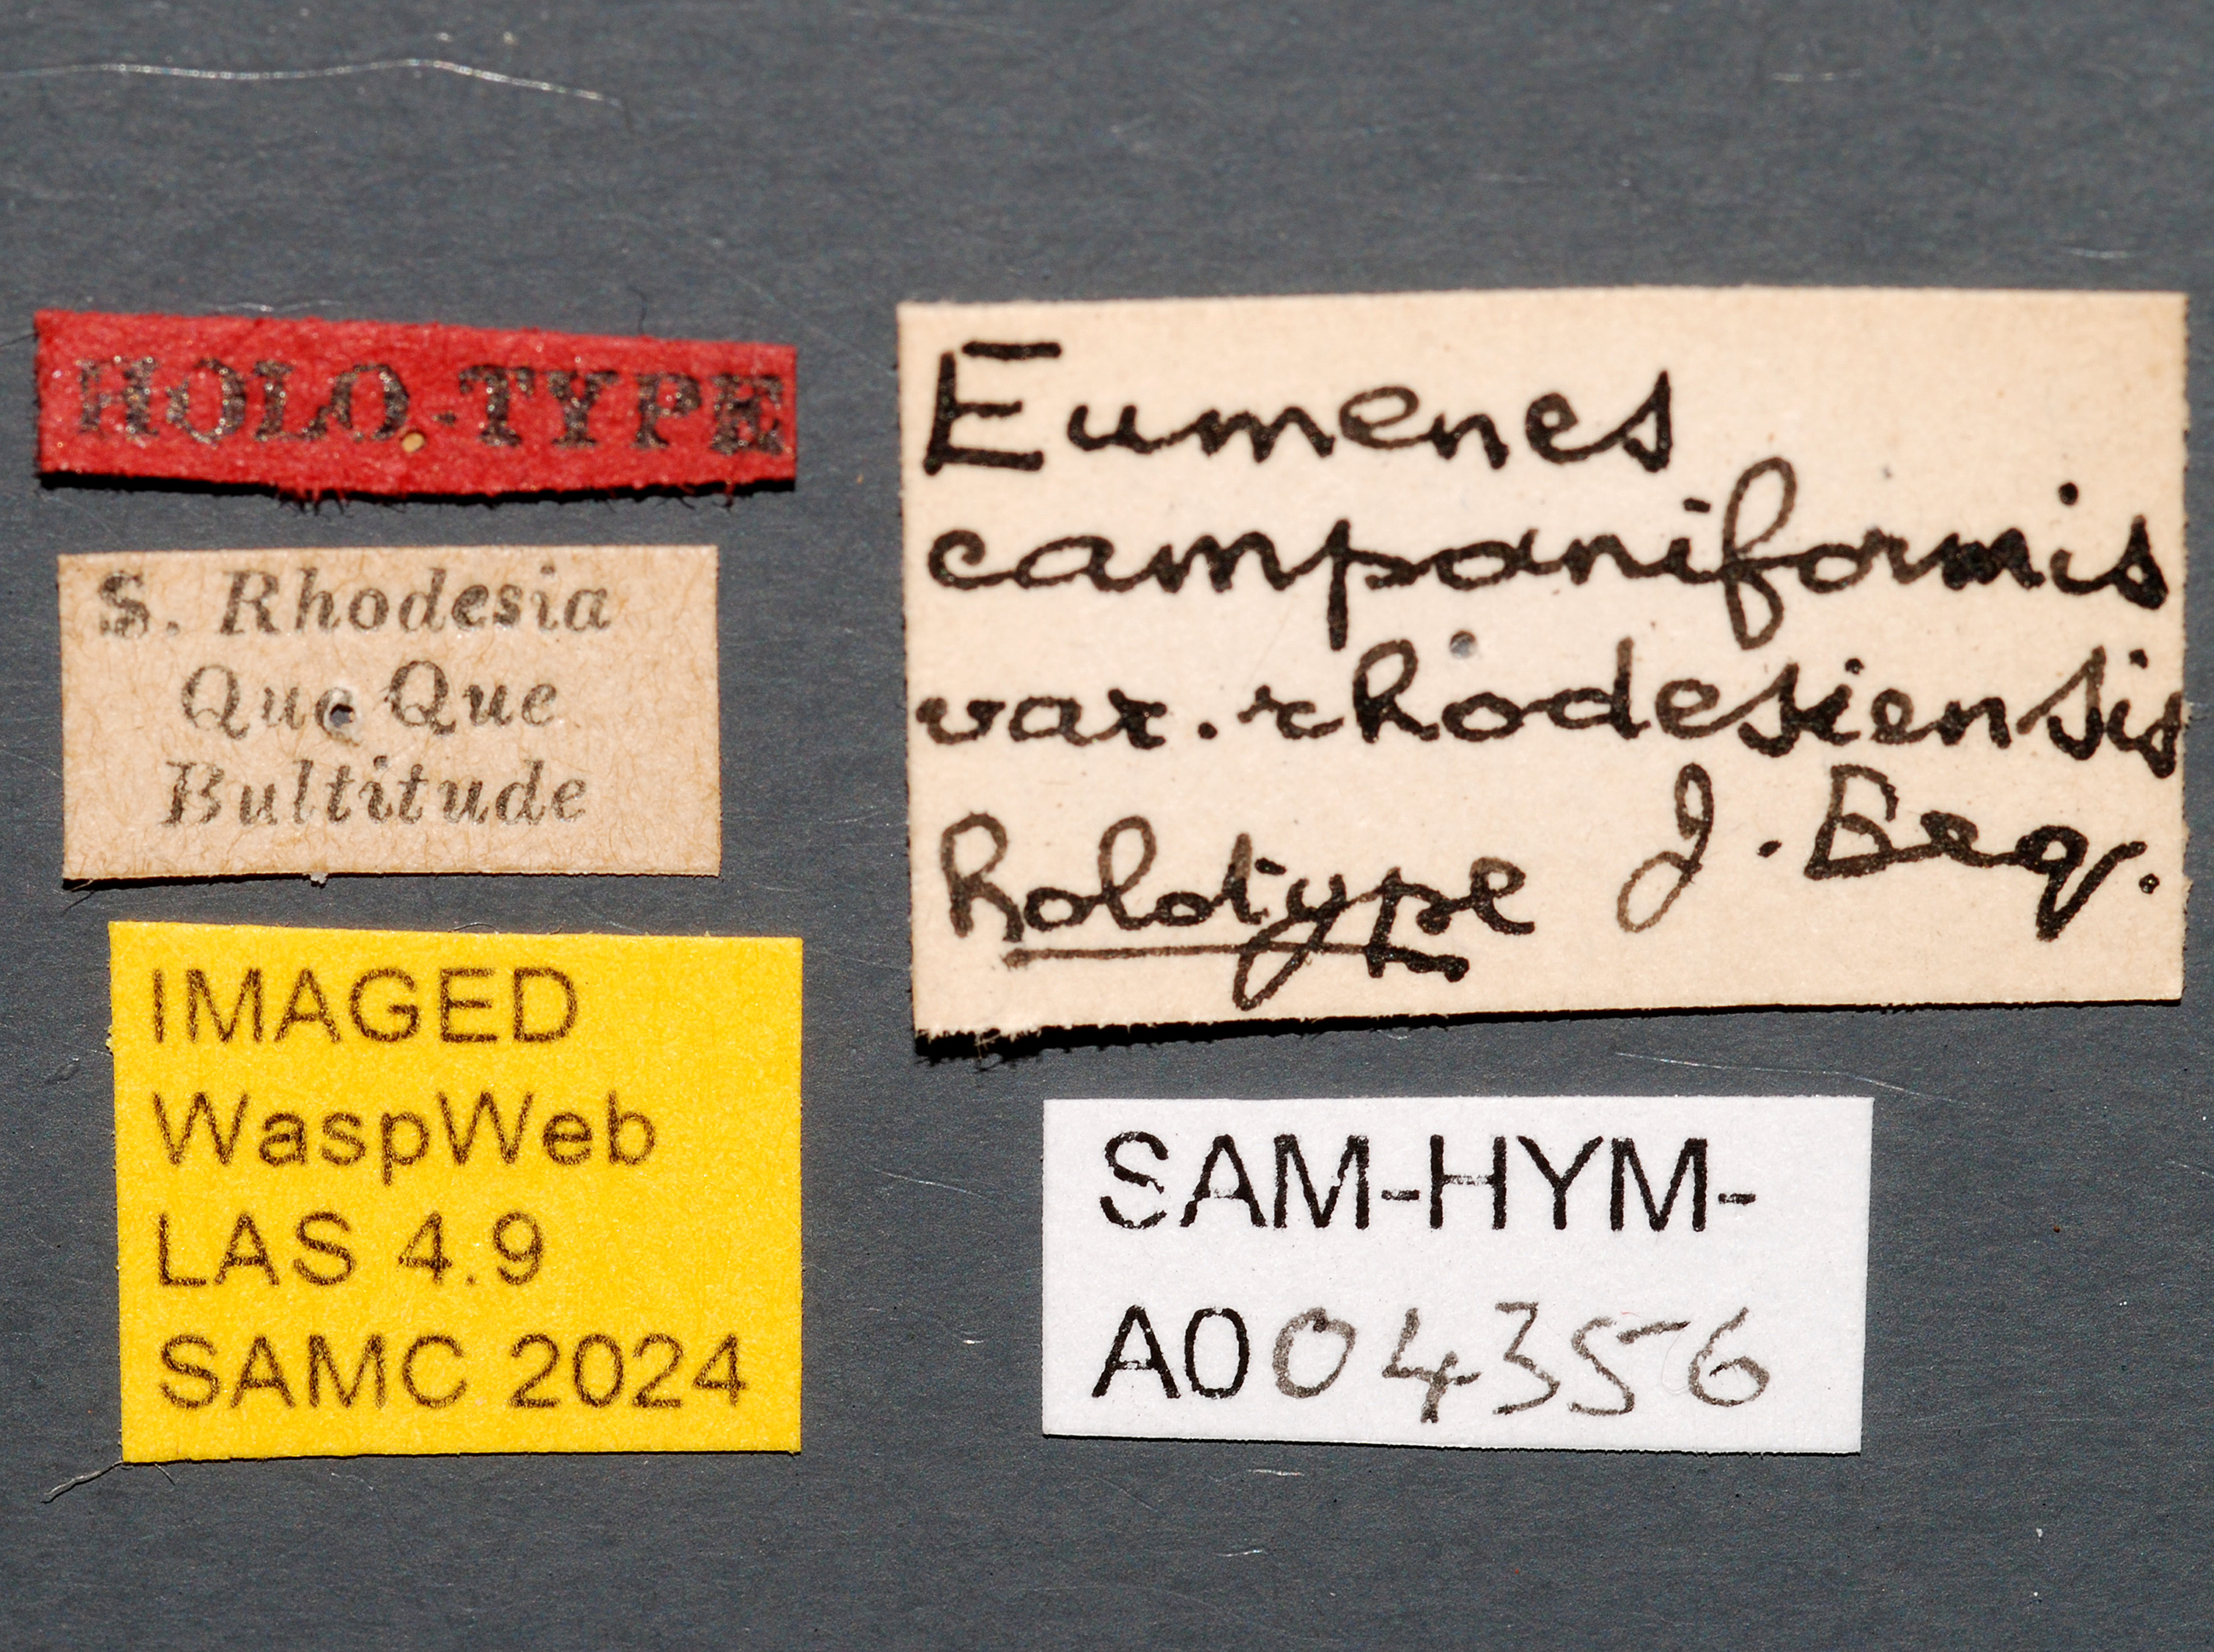 HOLO.-TYPE
S. Rhodesia
Que Que
Bultitude
IMAGED
WaspWeb
LAS 4.9
SAMC 2024
Eumenes
campaniformis
var. rhodesiensis
holotype J. Beq.
SAM-HYM-
A004356